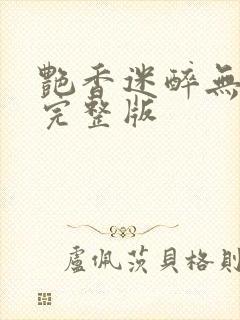 艷香迷醉無
完整版
盧佩茨貝格則